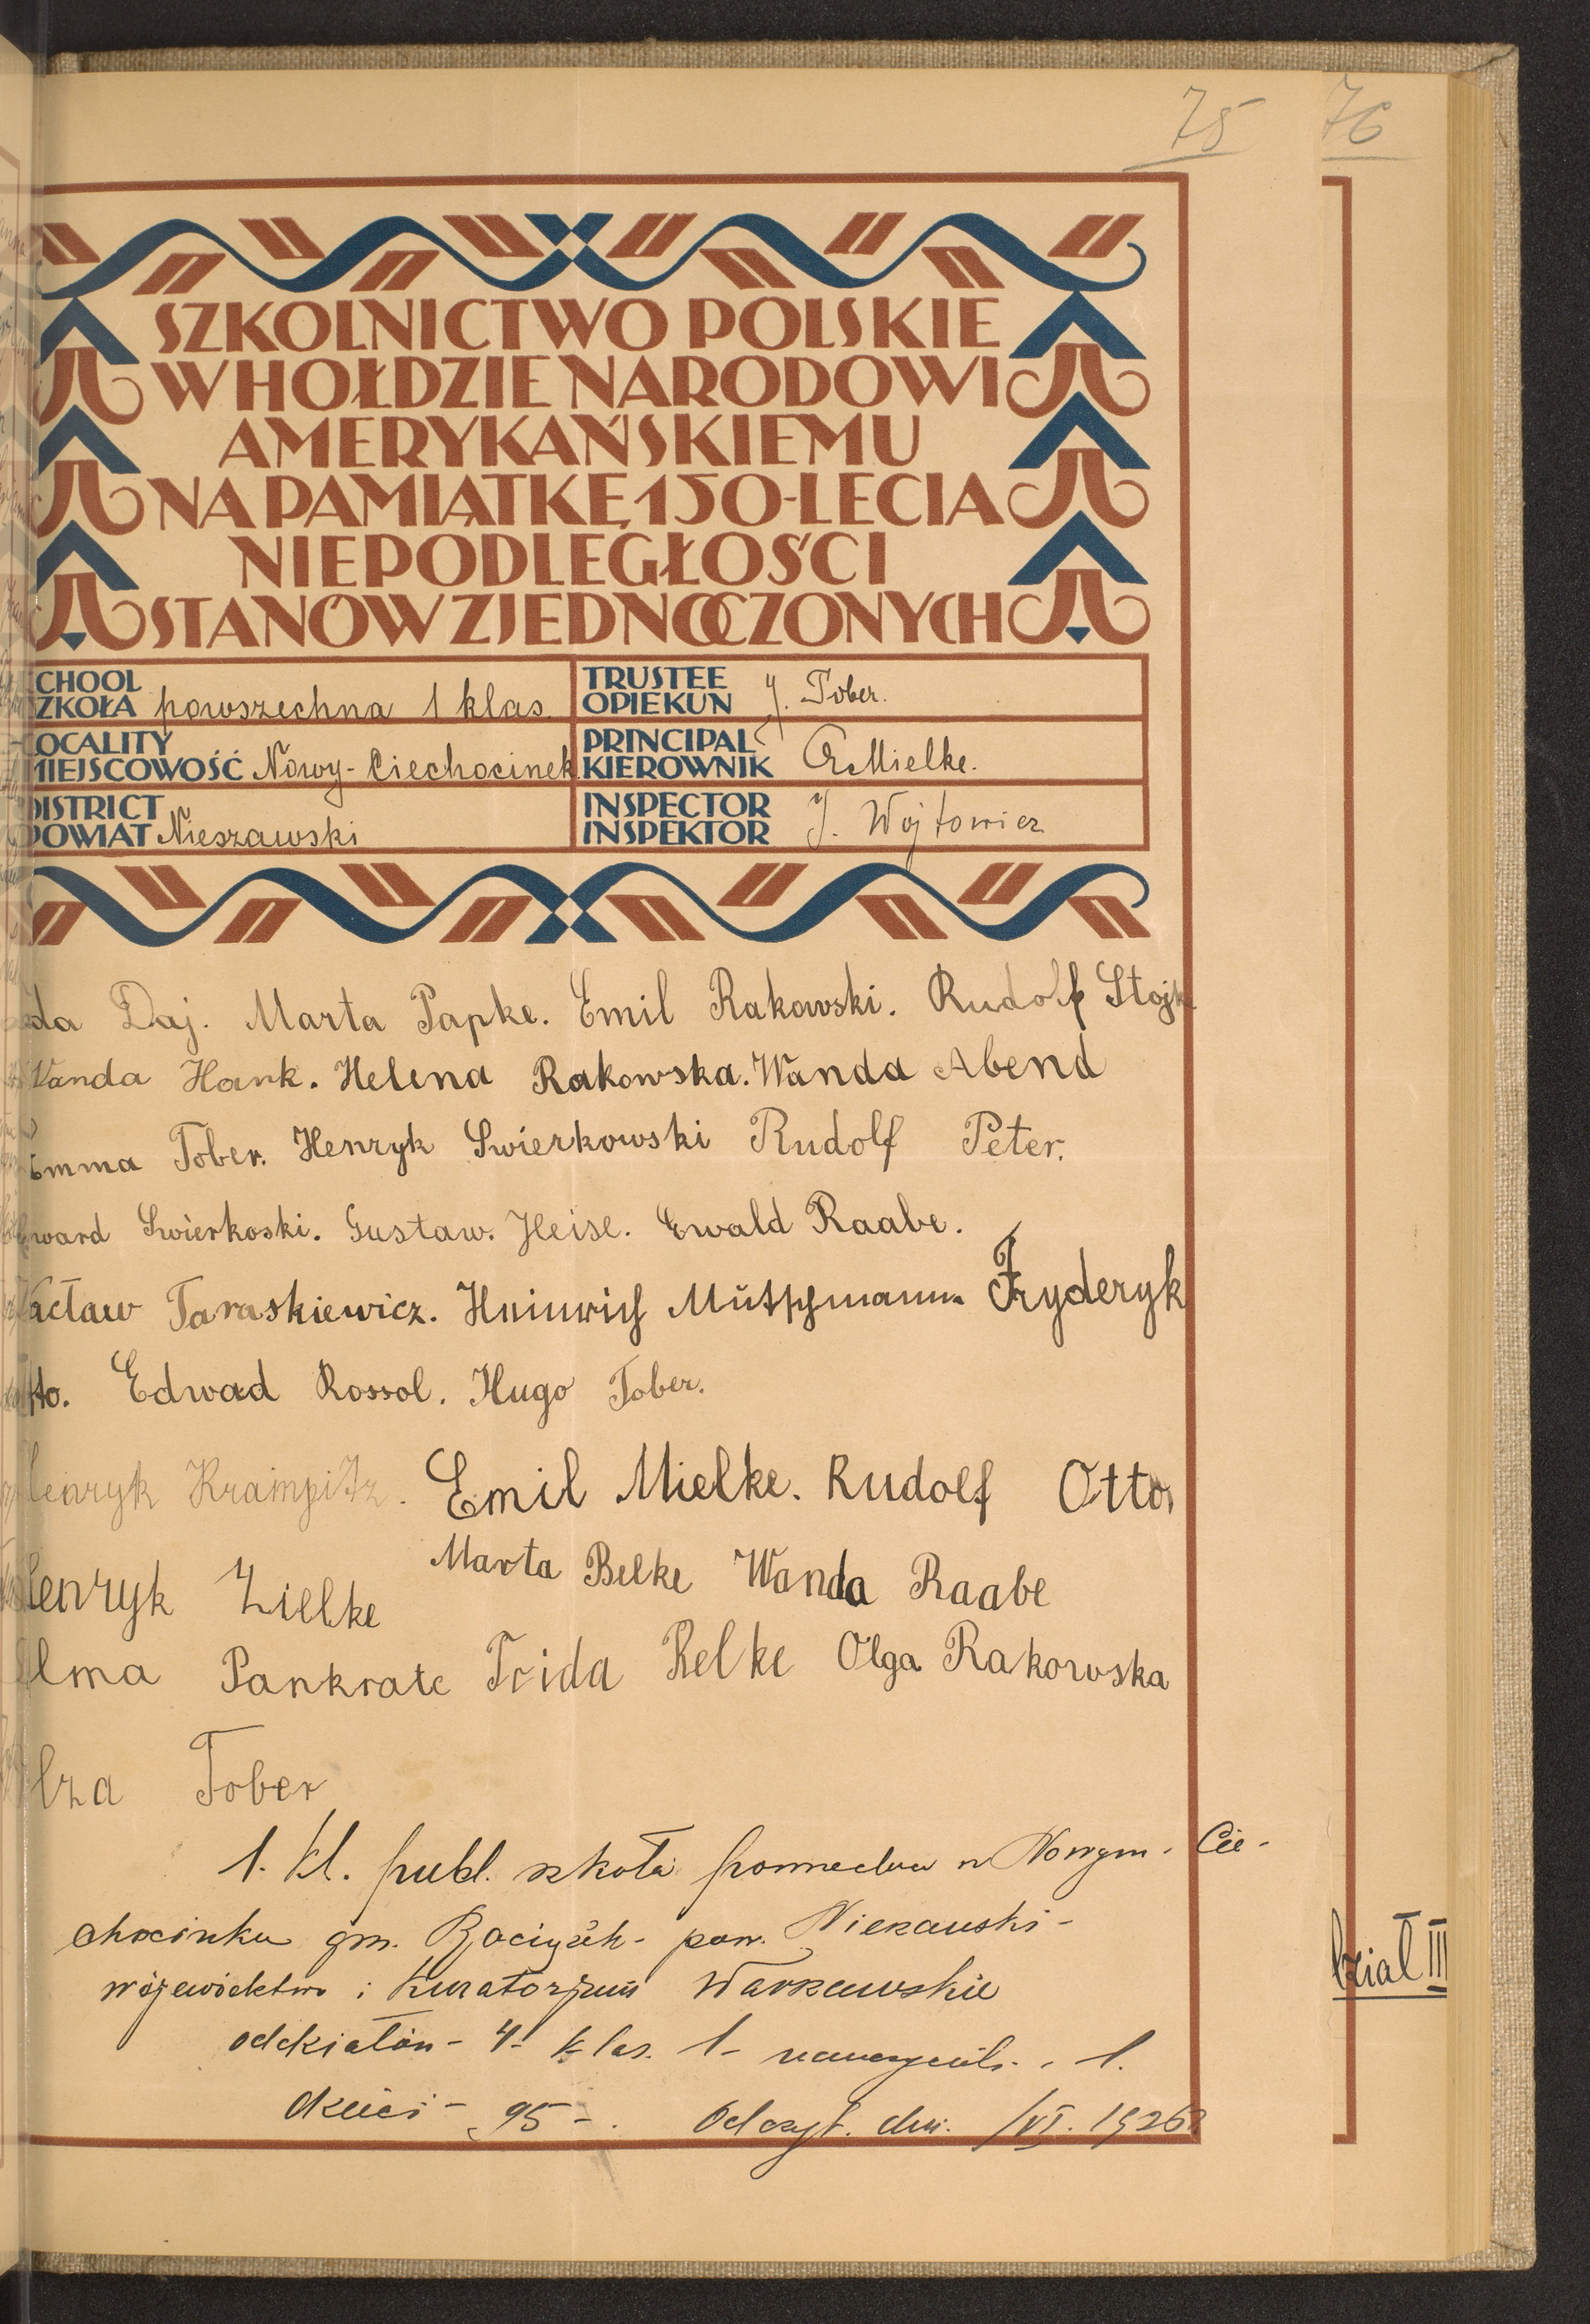 75 76
SZKOLNICTWO POLSKIE
W HOŁDZIE NARODOWI
AMERYKAŃSKIEMU
NA PAMIĄTKĘ 150-LECIA
NIEPODLEGŁOŚCI
STANÓW ZJEDNOCZONYCH
CHOOL
ZKOŁA powszechna 1 klas.
TRUSTEE
OPIEKUN J. Tober.
OCALITY
MIEJSCOWOŚĆ Nowy-Ciechocinek
PRINCIPAL
KIEROWNIK A Mielke.
DISTRICT
POWIAT Nieszawski
INSPECTOR
INSPEKTOR J. Wojtowicz
da Daj. Marta Papke. Emil Rakowski. Rudolf
Wanda Hank. Helena Rakowska. Wanda Abend
Emma Tober. Henryk Swierkowski Rudolf Peter.
ward Swierkoski. Gustaw. Heise. Ewald Raabe.
acław Taraskiewicz. Heinrich Mütschmann Fryderyk
tto. Edwad Rossol. Hugo Tober.
Henryk Krampitz. Emil Mielke. Rudolf Otto
Marta Belke Wanda Raabe
Henryk Zielke
lma Pankratc Frida Relke Olga Rakowska
lza Tober
1. kl. publ. szkoła w Nowym. Cie-
chocinku gm. pow. Nieszawski-
województwo i Kuratorjum Warszawskie
oddziałów - 4- klas. 1- 1.
dzieci - 95 -. dn. /VI. 1926
Dział III